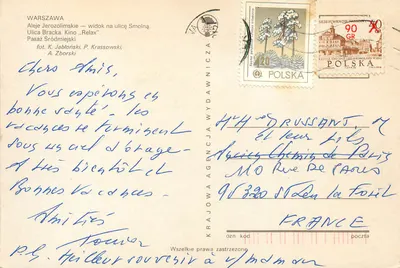 WARSZAWA
Aleje Jerozolimskie — widok na ulicę Smolną
Ulica Bracka. Kino „Relax"
Pasaż Śródmiejski
fot. K. Jabłoński, P. Krassowski,
A. Zborski
Chers Amis,
Vous espérons en
bonne santé. les
vacances se terminent
sous un ciel d'orage.
A très bientôt et
Bonnes Vacances.
Amitiés
P.S. Meilleur souvenir à v/maman
KRAJOWA AGENCJA WYDAWNICZA
POLSKA
90
GR
POLSKA
M & M DRUSSANT
et leur fils
Ancien Chemin de Paris
110 Rue de Paris
95320 St Leu la Forêt
FRANCE
nr kodu
poczta
Wszelkie prawa zastrzeżone